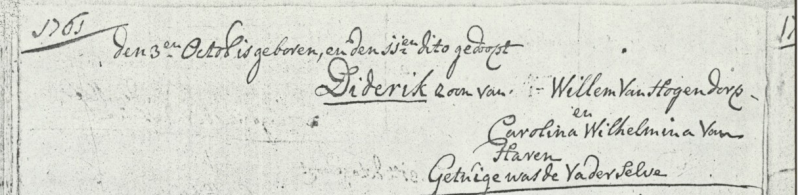 1761
den 3en Octob is geboren, en den 11en dito gedoopt
Diderik zoon van. Willem Van Hogendorp
en
Carolina Wilhelmina Van
Haren
Getuige was de Vader Selve